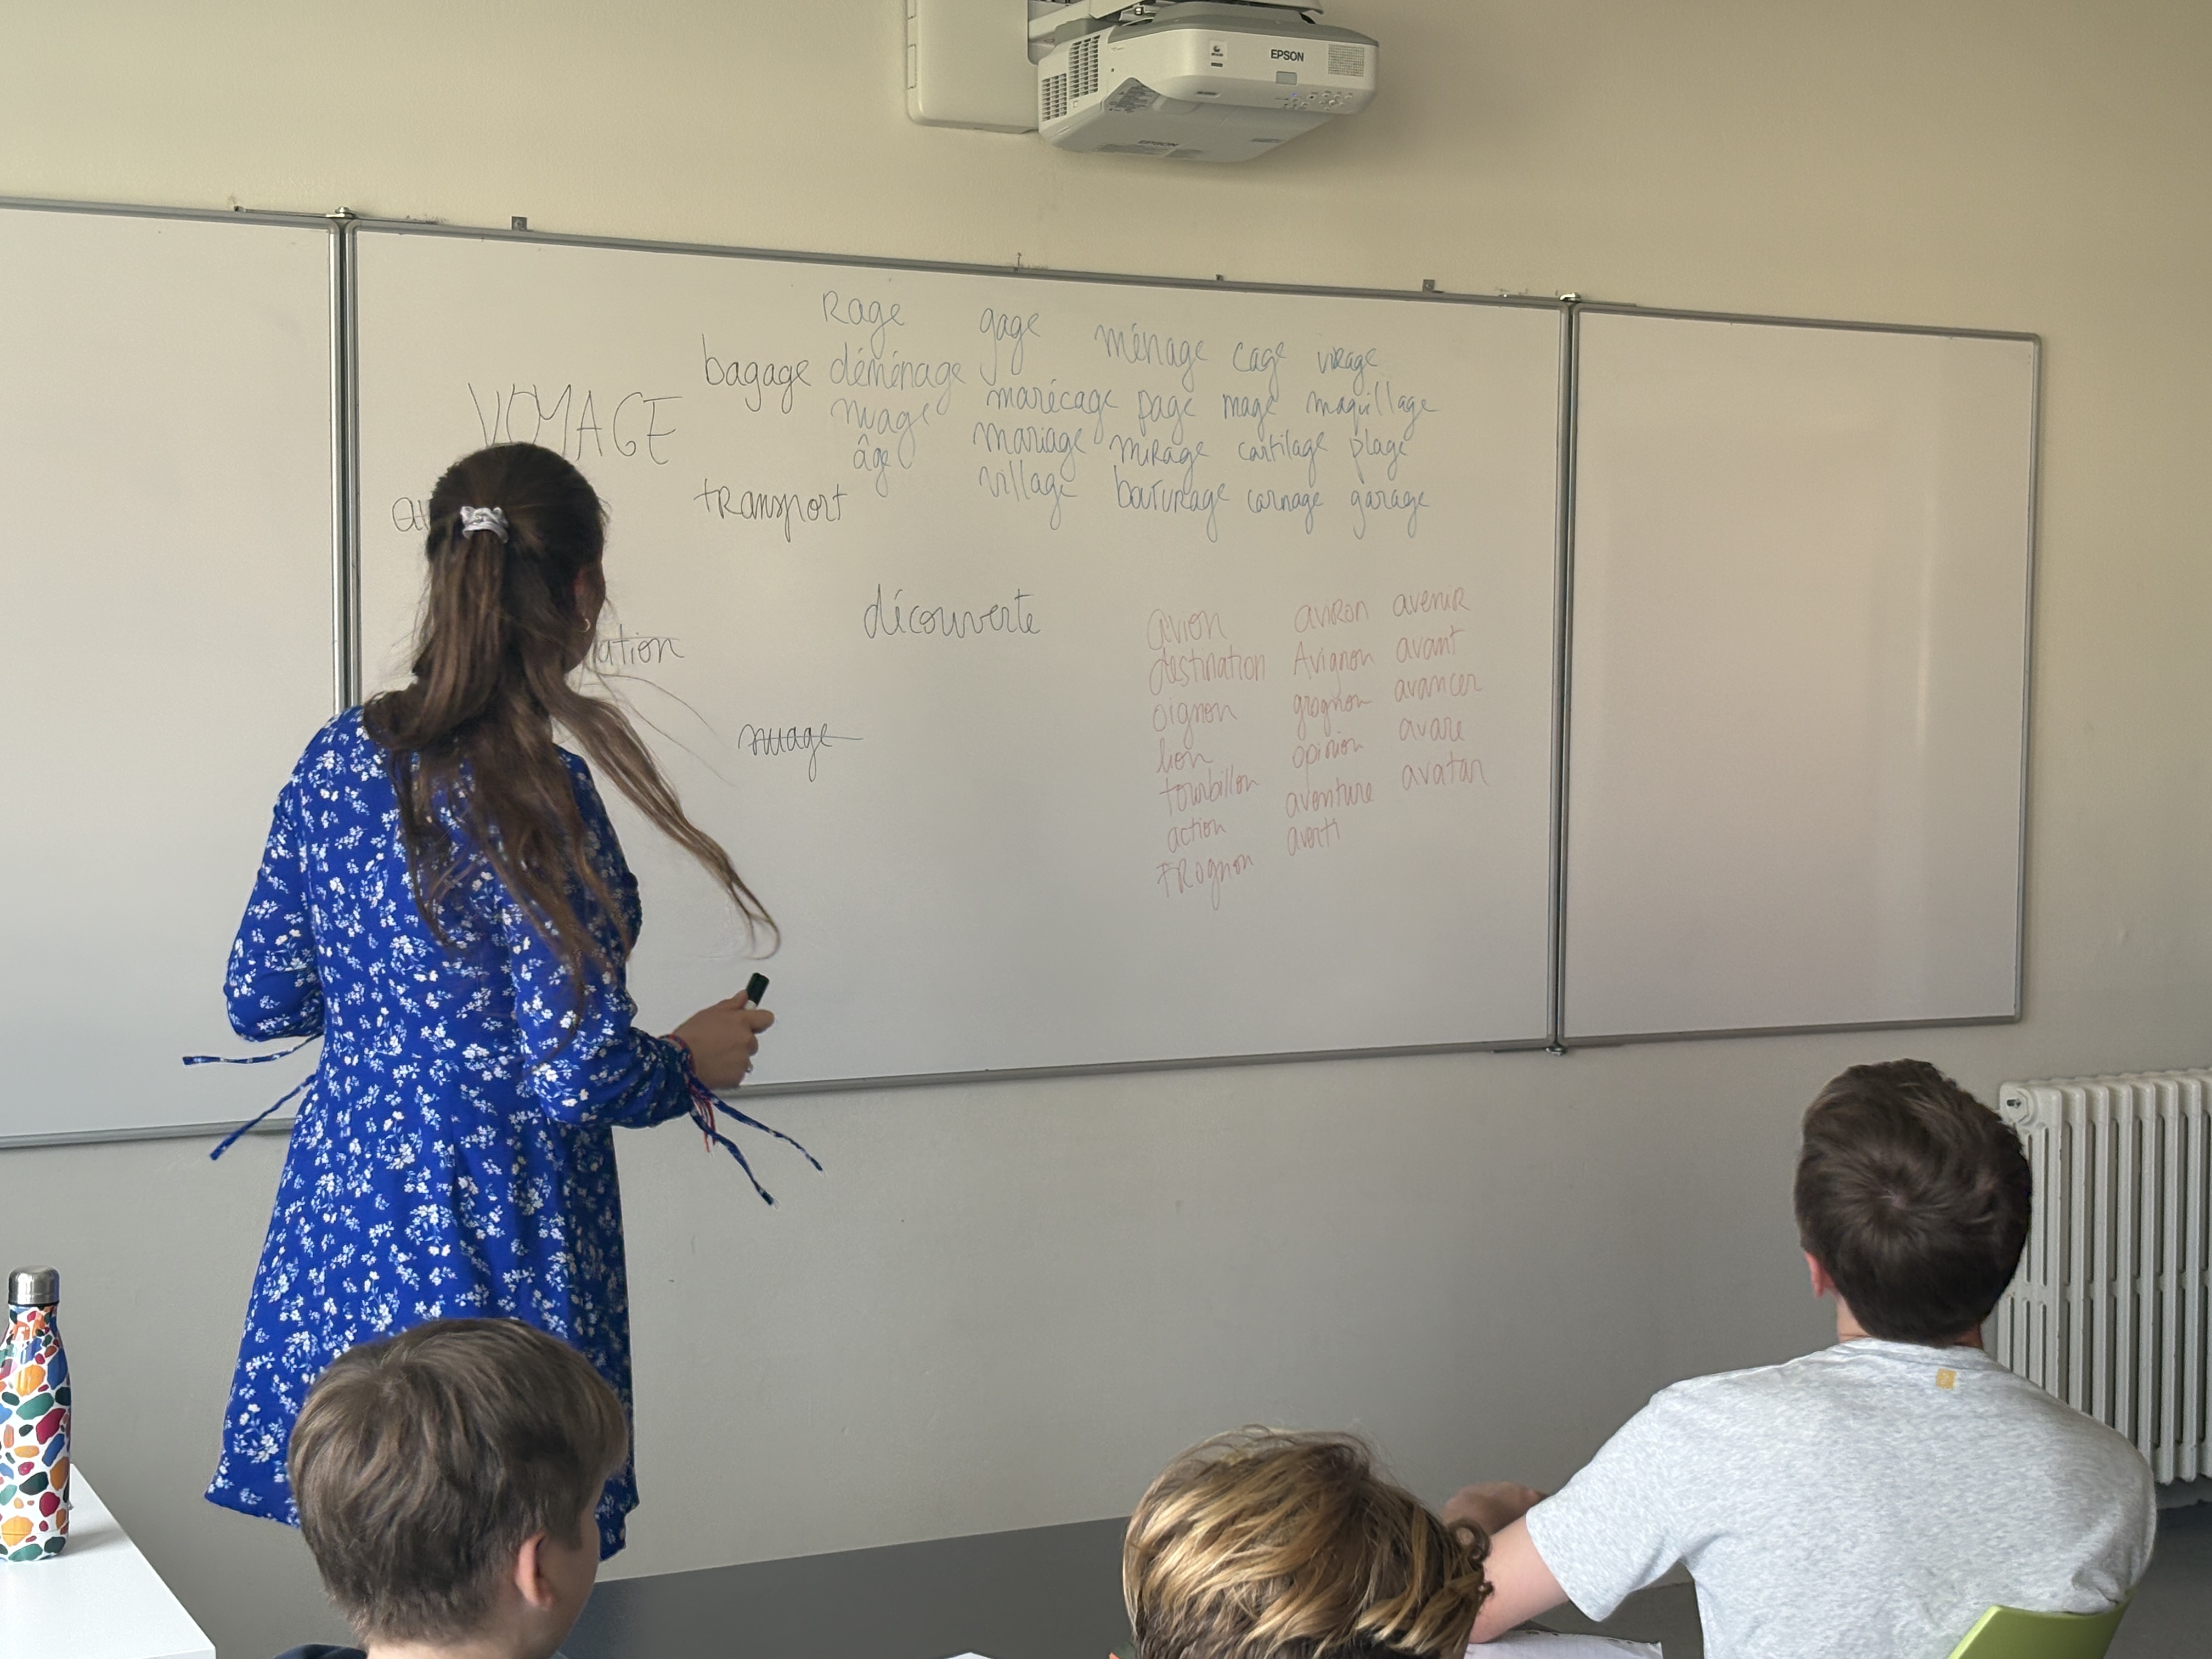 EPSON
EPSON
VOYAGE
Rage gage ménage cage virage
bagage déménage marécage page mage maquillage
nuage mariage mirage cartilage plage
âge village bouturage carnage garage
transport
découverte
ation
nuage
avion aviron avenir
destination Avignon avant
oignon grognon avancer
lion opinion avare
tourbillon aventure avatar
action averti
trognon